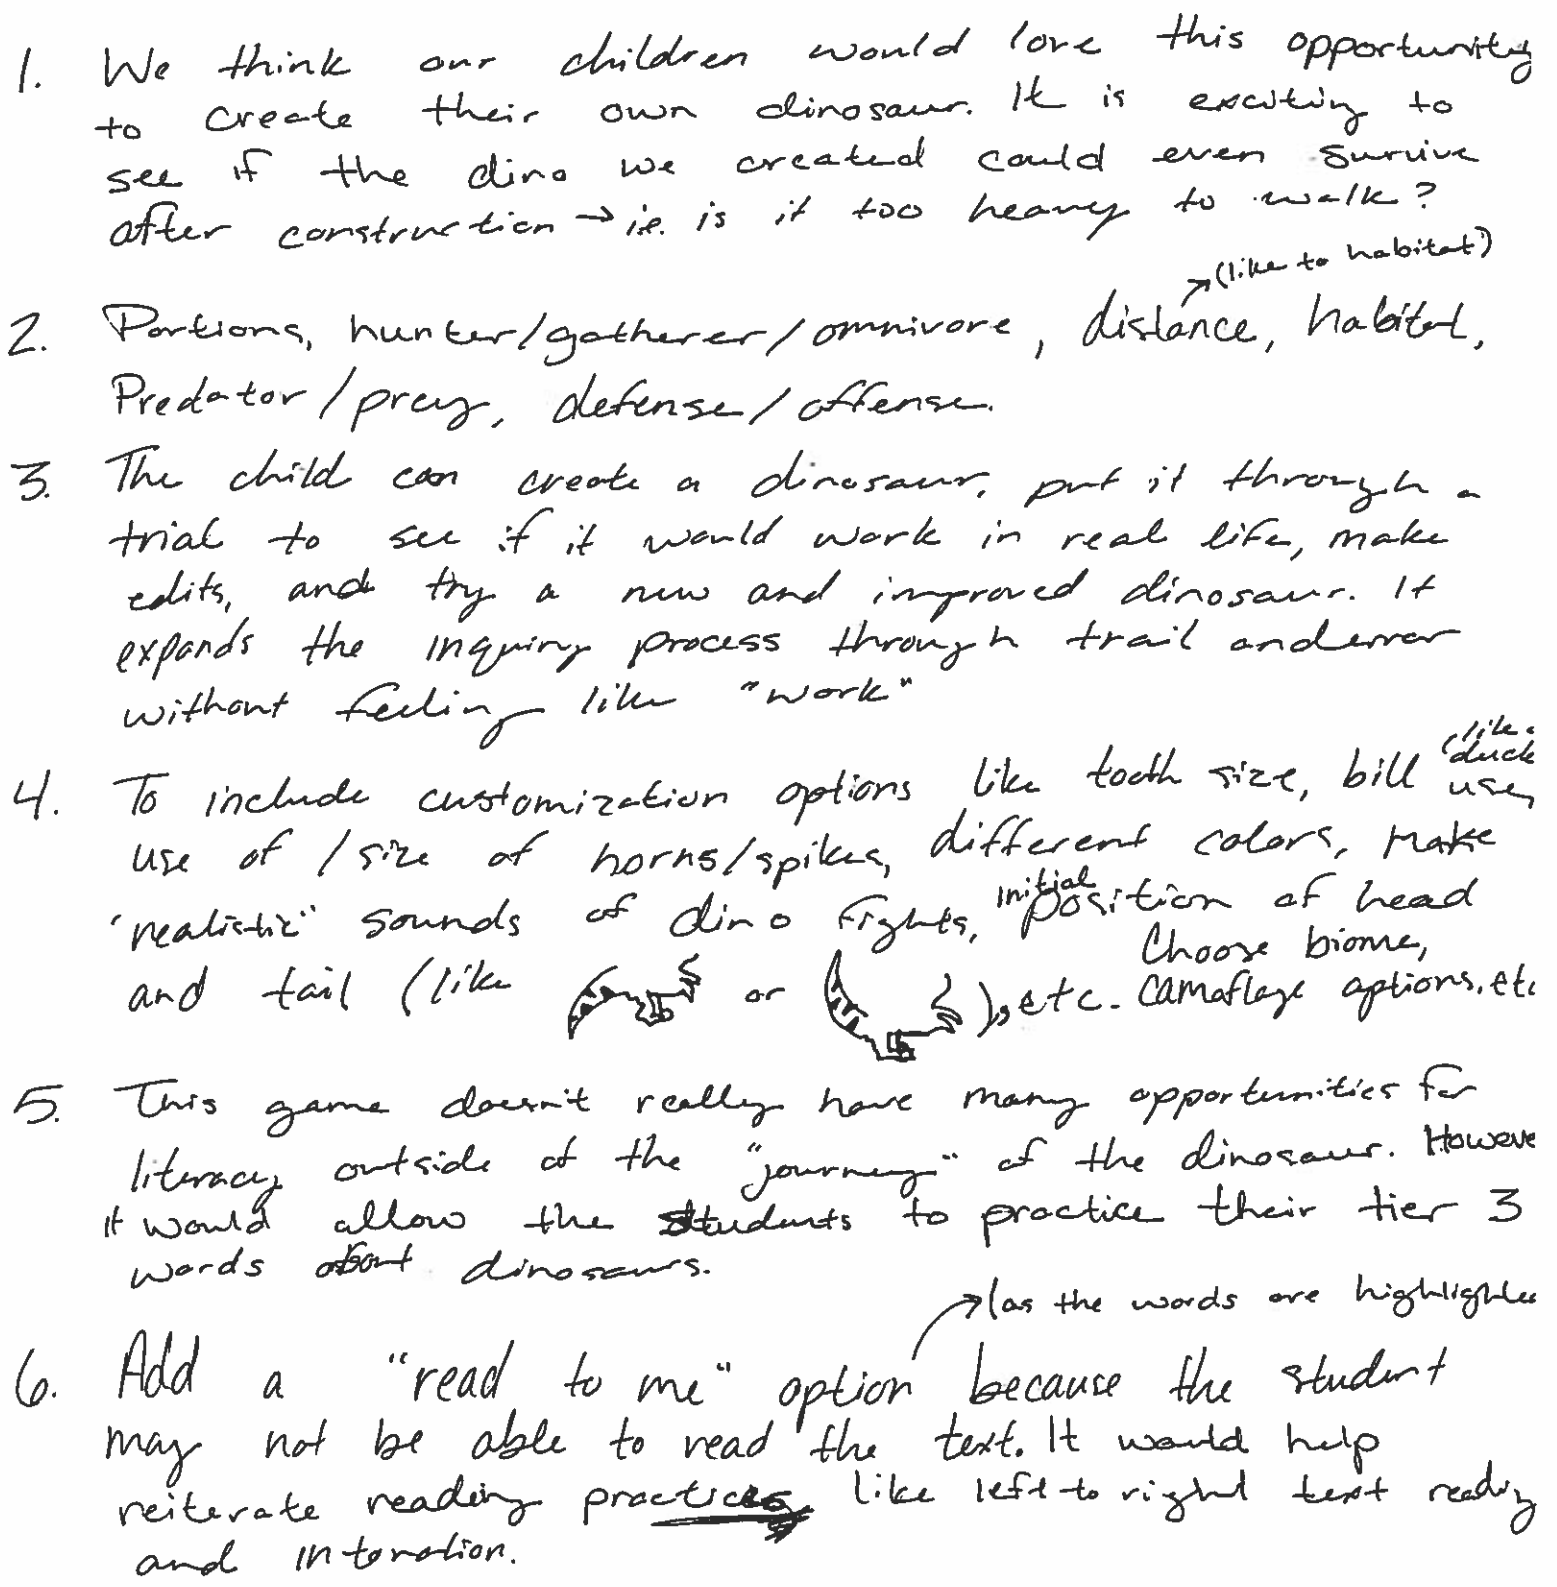 1. We think our children would love this opportunity
to create their own dinosaur. It is exciting to
see if the dino we created could even survive
after construction → i.e. is it too heavy to walk?
(like to habitat)
2. Portions, hunter/gatherer/omnivore, distance, habitat,
Predator/prey, defense/offense.
3. The child can create a dinosaur, put it through a
trial to see if it would work in real life, make
edits, and try a new and improved dinosaur. It
expands the inquiry process through trail and error
without feeling like "work"
4. To include customization options like tooth size, bill (like a duck use,
use of/size of horns/spikes, different colors, make
"realistic" sounds of dino fights, initial position of head
and tail (like or ), etc. Choose biome,
camoflage options, etc
5. This game doesn't really have many opportunities for
literacy outside of the "journey" of the dinosaur. Howeve
it would allow the students to practice their tier 3
words about dinosaurs.
(as the words are highlighted
6. Add a "read to me" option because the student
may not be able to read the text. It would help
reiterate reading practices like left to right text reading
and intonation.